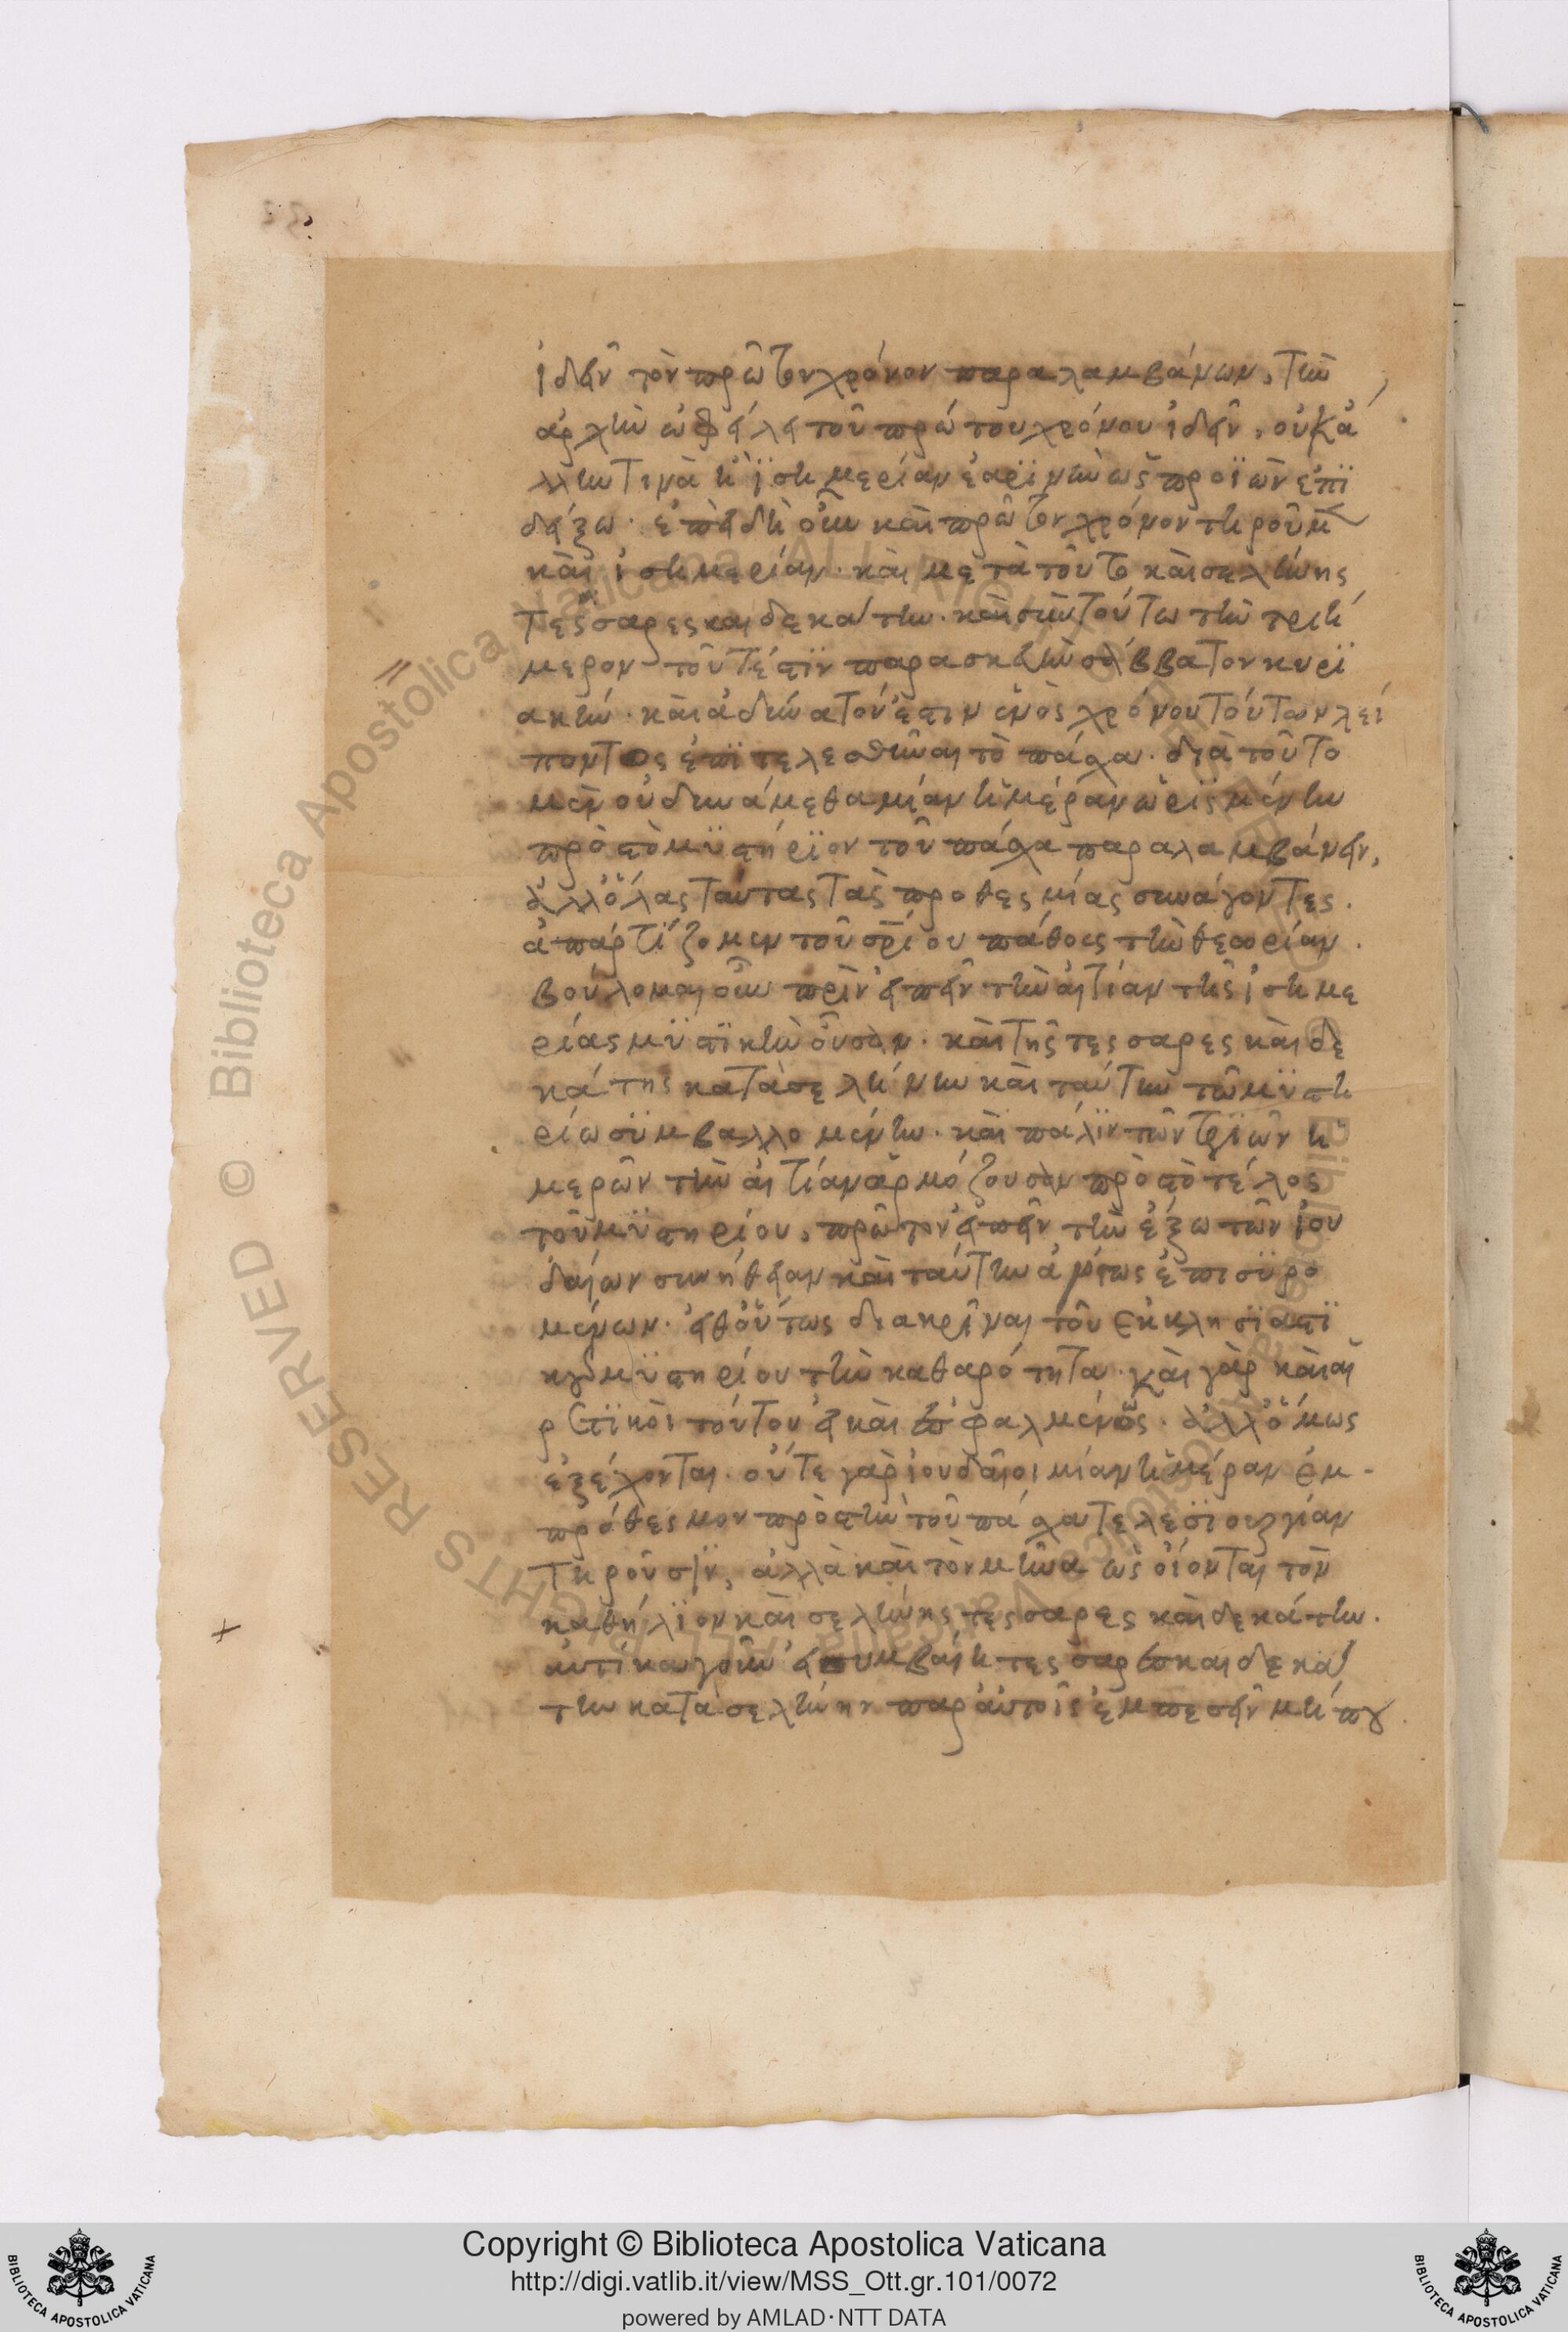 ἰδεῖν τὸν πρῶτον χρόνον παραλαμβάνων, τὴν
ἀρχὴν ὠφειλε τοῦ πρώτου χρόνου ἰδεῖν, οὐκ ἄ
λλην τινὰ ἢ ἰσημερίαν ἐαρϊνὴν ὡς προϊὼν ἐπι
δείξω. ἐπειδὴ οὖν καὶ πρῶτον χρόνον τηροῦμ
καὶ ἰσημερίαν. καὶ μετὰ τοῦτο καὶ σελήνης
τεσσαρες και δεκάτην. καὶ σὺν τούτω τὴν τριή
μερον τοῦτέστϊν παρασκευὴν σάββατον κυρϊ
ακήν. καὶ ἀδύνατόν ἐστιν ἑνὸς χρόνου τούτων λεί
ποντος ἐπϊτελεσθῆναι τὸ πάσχα. διὰ τοῦτο
μὲν οὐ δυνάμεθα μίαν ἡμέραν ὡρισμένην
πρὸς τὸ μϋστήρϊον τοῦ πάσχα παραλαμβάνειν,
ἀλλ' ὅλας ταύτας τὰς προθεσμίας συνάγοντες.
ἀπαρτίζομεν τοῦ σρίου πάθους τὴν θεωρίαν.
βούλομαι οὖν πρὶν εἰπεῖν τὴν αἰτίαν τῆς ἰσημε
ρίας μϋστϊκὴν οὖσαν. καὶ τῆς τεσσαρες καὶ δε
κάτης κατὰ σελήνην καὶ ταύτην τῶ μϋστη
ρίω σϋμβαλλομένην. καὶ πάλϊν τῶν τρϊῶν ἡ
μερῶν τὴν αἰτίαν ἁρμόζουσαν πρὸς τὸ τέλος
τοῦ μϋστηρίου, πρῶτον εἰπεῖν τὴν ἔξω τῶν ἰου
δαίων συνήθειαν καὶ ταύτην ἀμέτως ἐπισϋρο
μένων. εἶθ' οὕτως διακρῖναι τοῦ ἐκκλησϊαστϊ
κοῦ μϋστηρίου τὴν καθαρότητα. καὶ γὰρ καὶ αἱ
ρετϊκοὶ τούτου εἰ καὶ ἐσφαλμένως. ἀλλ' ὅμως
ἐξέχονται. οὔτε γὰρ ἰουδαῖοι μίαν ἡμέραν ἐμ-
πρόθεσμον πρὸς τὴν τοῦ πάσχα τελεσϊουργίαν
τηροῦσϊν, ἀλλὰ καὶ τὸν μῆνα ὡς οἴονται τὸν
καθήλϊον καὶ σελήνης τεσσαρες καὶ δεκάτην.
αὐτίκα γοῦν εἰ συμβαίη τεσσαρεσκαιδεκά
την κατὰ σελήνην παρ' αὐτοῖς ἐμπεσεῖν μήπου
Copyright © Biblioteca Apostolica Vaticana
http://digi.vatlib.it/view/MSS_Ott.gr.101/0072
powered by AMLAD·NTT DATA